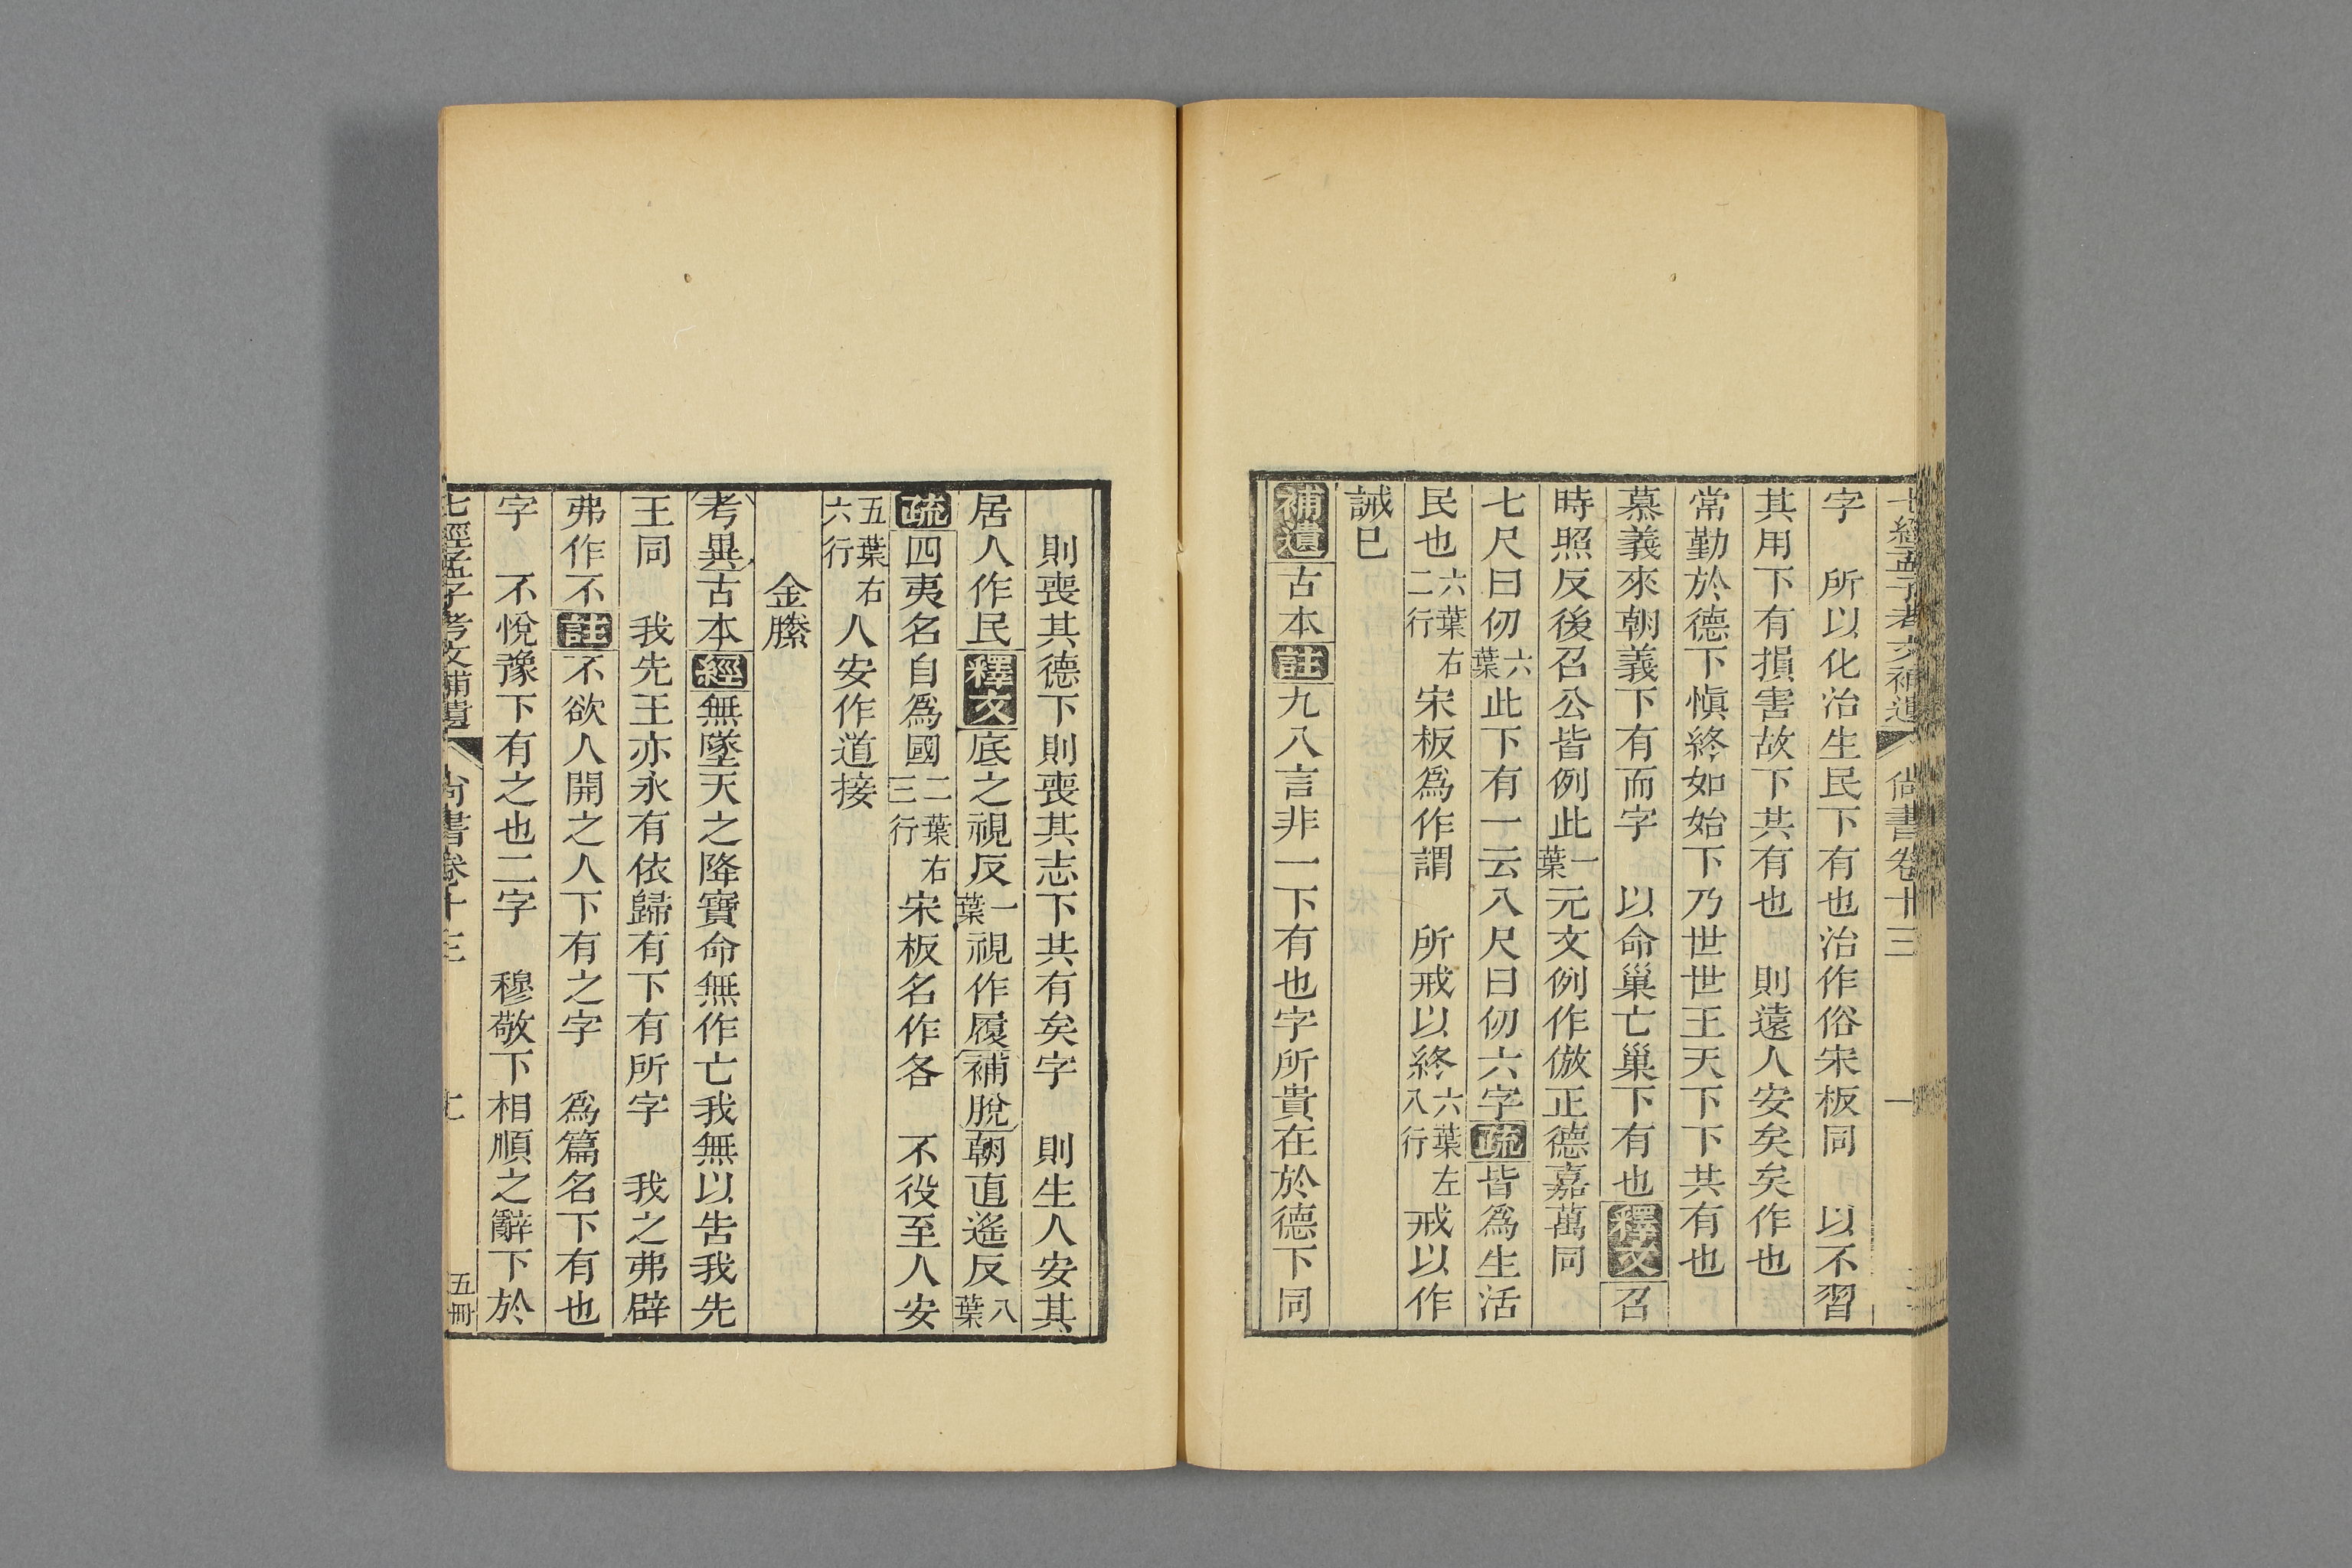 七經孟子考文補遺 尚書卷十三 一
字 所以化治生民下有也治作俗宋板同 以不習
其用下有損害故下共有也 則遠人安矣矣作也
常勤於德下愼終如始下乃世世王天下下共有也
慕義來朝義下有而字 以命巢亡巢下有也釋文召
時照反後召公皆例此一葉元文例作倣正德嘉萬同
七尺曰仞六葉此下有一云八尺曰仞六字疏皆爲生活
民也六葉右二行宋板爲作謂 所戒以終六葉左八行戒以作
誠已
補遺古本註九八言非一下有也字所貴在於德下同
則喪其德下則喪其志下共有矣字 則生人安其
居人作民釋文底之視反一葉視作履補脫朝直遙反八葉
疏四夷名自爲國二葉右三行宋板名作各 不役至人安
五葉右六行人安作道接
金縢
考異古本經無墜天之降寶命無作亡我無以告我先
王同 我先王亦永有依歸有下有所字 我之弗辟
弗作不註不欲人開之人下有之字 爲篇名下有也
字 不悅豫下有之也二字 穆敬下相順之辭下於
七經孟子考文補遺 尚書卷十三 五冊